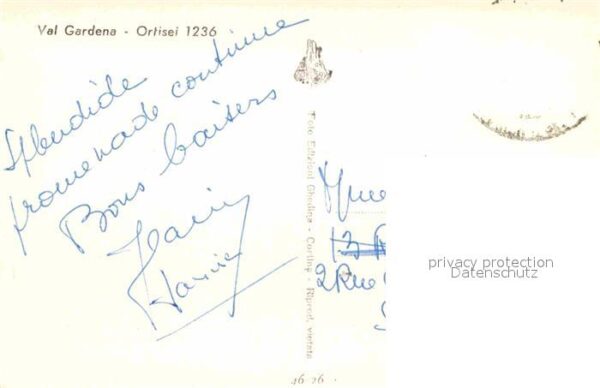 Val Gardena - Ortisei 1236
Splendide
promenade continue
Bons baisers
Foto Edizioni Ghedina - Cortina - Riprod. vietata
Mme
13
2 Rue
privacy protection
Datenschutz